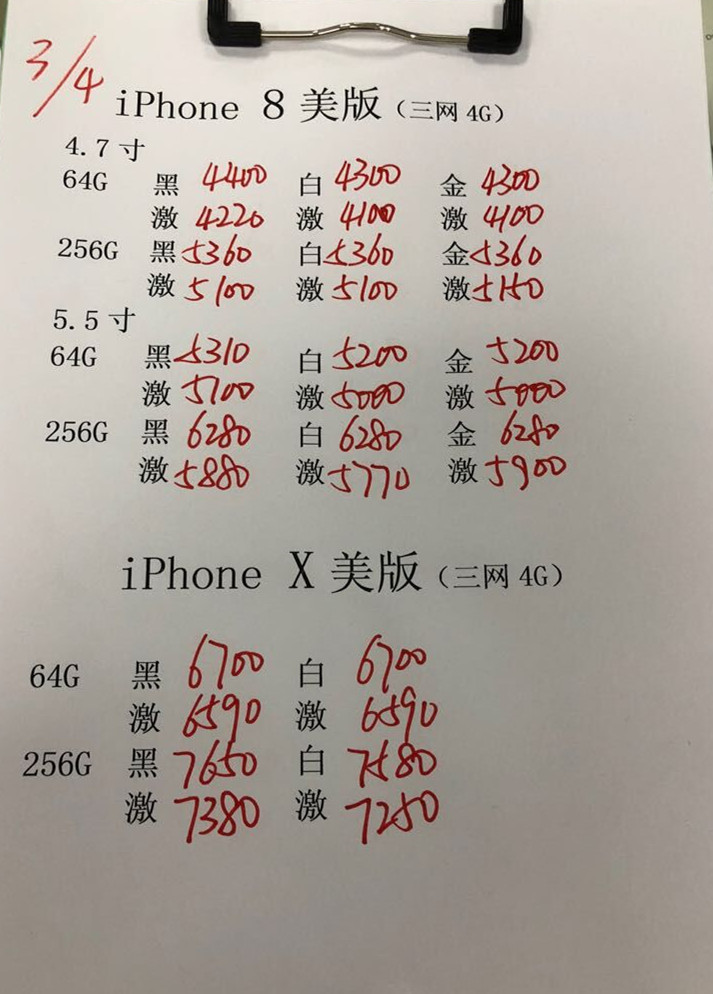 3/4
iPhone 8 美版（三网 4G）
4.7 寸
64G 黑 4400 白 4300 金 4300
激 4220 激 4100 激 4100
256G 黑 5360 白 5360 金 5360
激 5100 激 5100 激 5150
5.5 寸
64G 黑 5310 白 5200 金 5200
激 5100 激 5000 激 5000
256G 黑 6280 白 6280 金 6280
激 5880 激 5770 激 5900
iPhone X 美版（三网 4G）
64G 黑 6700 白 6700
激 6590 激 6590
256G 黑 7650 白 7580
激 7380 激 7250